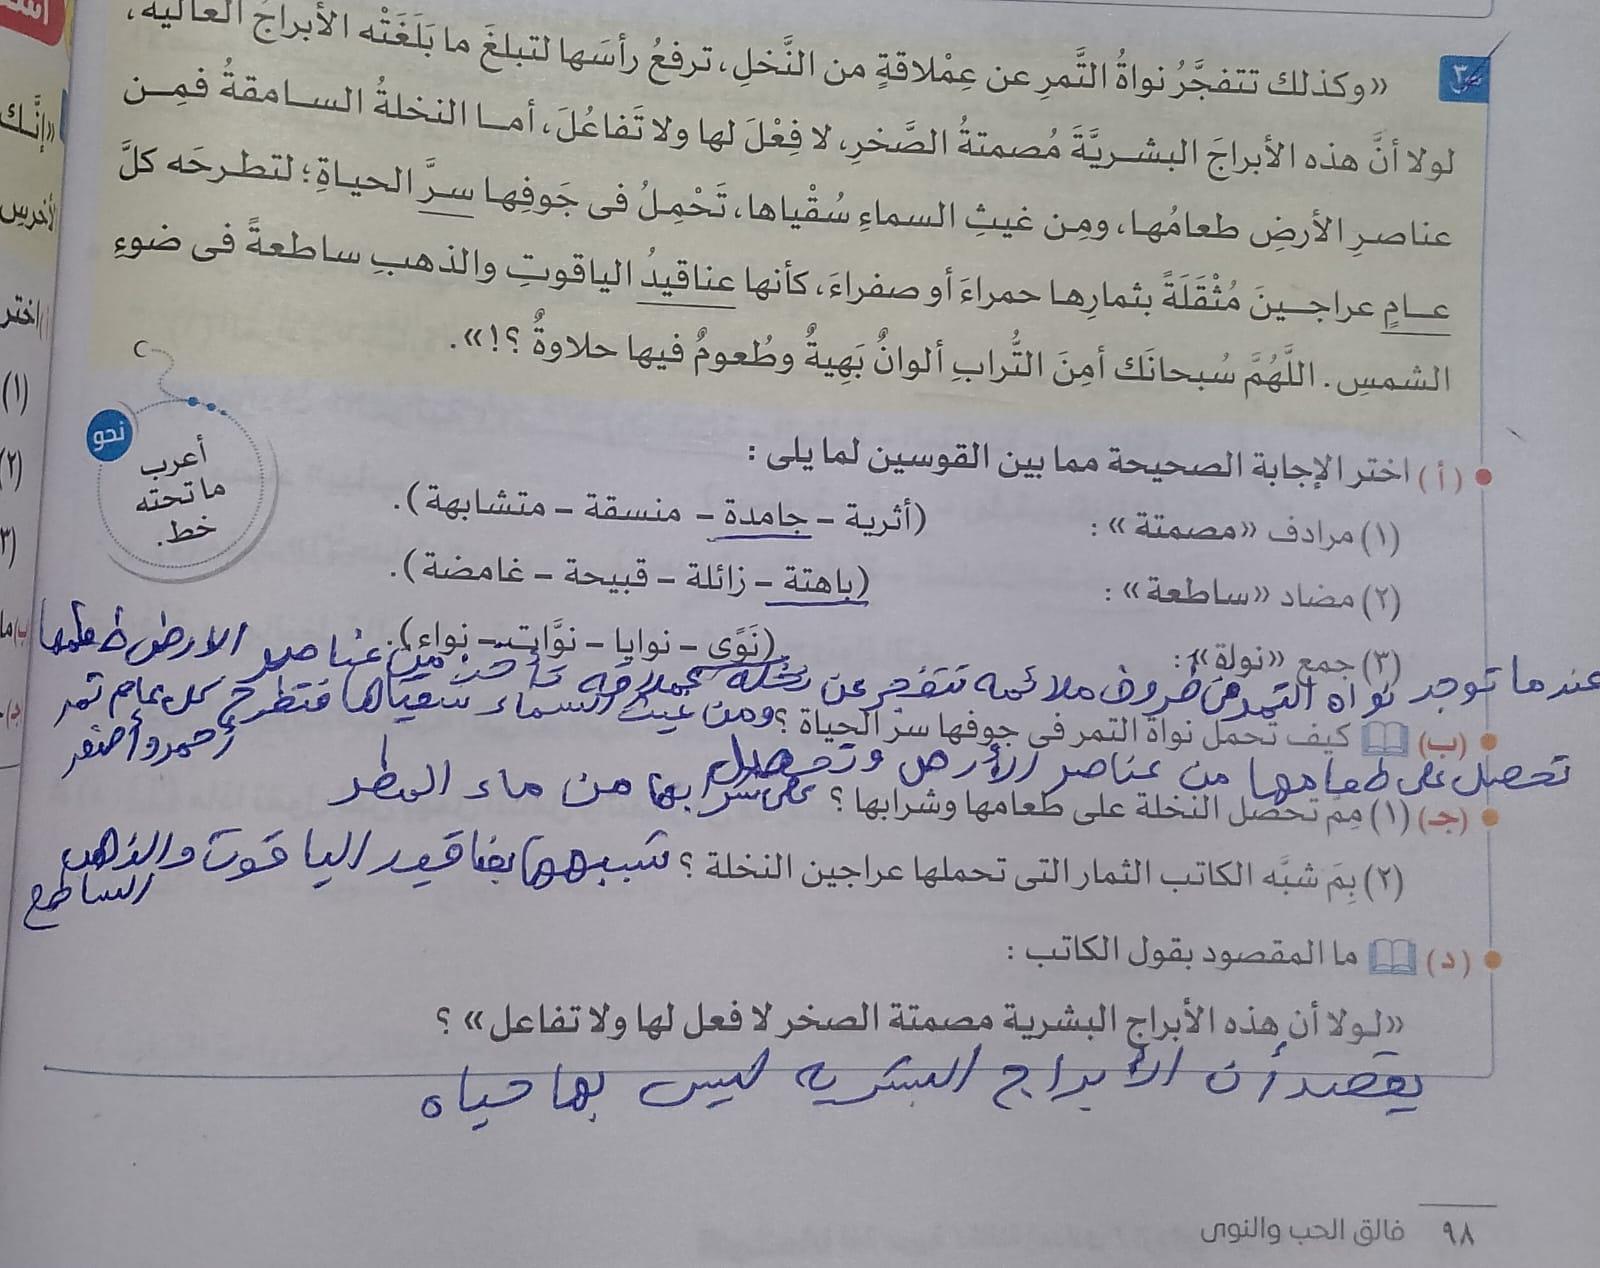 س٣ «وكذلك تتفجَّرُ نواةُ التَّمرِ عن عِمْلاقةٍ من النَّخلِ، ترفعُ رأسَها لتبلغَ ما بَلَغَتْه الأبراجُ العالية،
لولا أنَّ هذه الأبراجَ البشريَّةَ مُصمتةُ الصَّخرِ، لا فِعْلَ لها ولا تَفاعُلَ، أما النخلةُ السامقةُ فمِن
عناصرِ الأرضِ طعامُها، ومِن غيثِ السماءِ سُقْياها، تَحْمِلُ فى جَوفِها سرَّ الحياةِ؛ لتطرحَه كلَّ
عامٍ عراجينَ مُثْقَلَةً بثمارِها حمراءَ أو صفراءَ، كأنها عناقيدُ الياقوتِ والذهبِ ساطعةً فى ضوءِ
الشمسِ. اللَّهُمَّ سُبحانَك أمِنَ التُّرابِ ألوانٌ بَهِيةٌ وطُعومٌ فيها حلاوةٌ ؟!».
نحو
أعرب
ما تحته
خط.
(أ) اختر الإجابة الصحيحة مما بين القوسين لما يلى :
(١) مرادف «مصمتة» : (أثرية – جامدة – منسقة – متشابهة).
(٢) مضاد «ساطعة» : (باهتة – زائلة – قبيحة – غامضة).
(٣) جمع «نواة» : (نَوًى – نوايا – نوَّات – نواء).
عندما توجد نواه التمر فى ظروف ملائمه تتفجر عن نخلة عملاقه تأخذ من عناصر الارض طعامها
ومن غيث السماء سقياها فتطرح كل عام تمر
أحمر وأصفر
(ب) كيف تحمل نواة التمر فى جوفها سر الحياة ؟
تحصل على طعامها من عناصر الأرض وتحصل
على شرابها من ماء المطر
(جـ) (١) مِمَ تحصل النخلة على طعامها وشرابها ؟
(٢) بِمَ شبَّه الكاتب الثمار التى تحملها عراجين النخلة ؟ شبهها بعناقيد الياقوت والذهب
الساطع
(د) ما المقصود بقول الكاتب :
«لولا أن هذه الأبراج البشرية مصمتة الصخر لا فعل لها ولا تفاعل» ؟
يقصد أن الأبراج البشريه ليس بها حياه
٩٨ فالق الحب والنوى
«إنَّك
الأخرس
اختر
(١)
(٢)